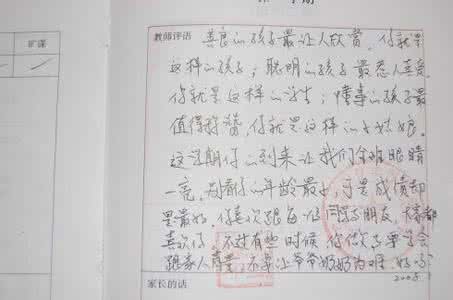 旷课
教师评语 善良的孩子最让人欣赏，你就是
这样的孩子；聪明的孩子最惹人喜爱，
你就是这样的学生；懂事的孩子最
值得称赞，你就是这样的小姑娘。
这学期你的到来让我们全班眼睛
一亮，别看你的年龄最小，可是成绩却
是最好。你喜欢跟每位同学交朋友，大家都
喜欢你，不过有些时候你做了要学会
跟家人商量，不要让爷爷奶奶为难，好吗？
2008
家长的话